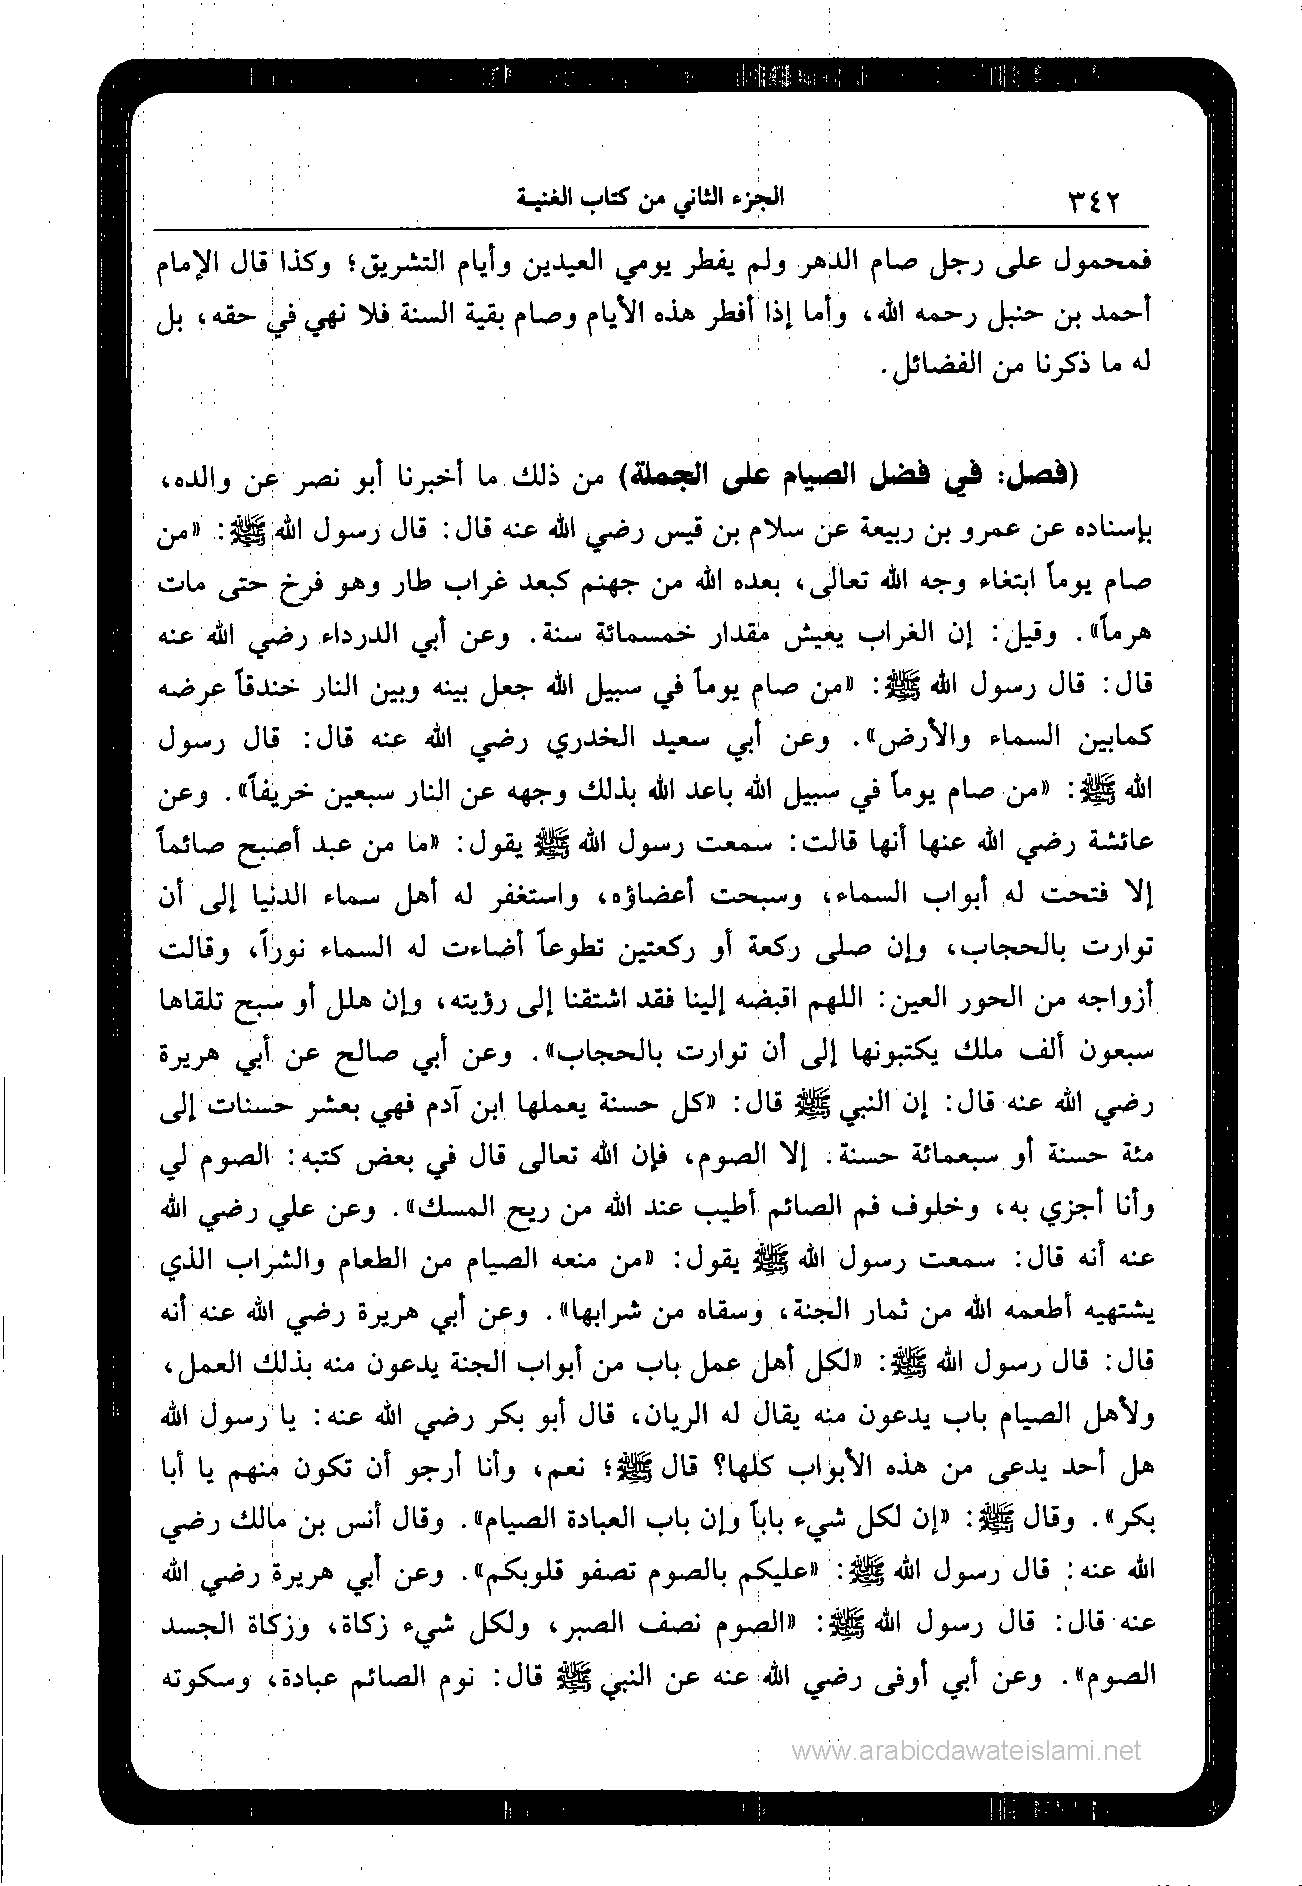 ٣٤٢ الجزء الثاني من كتاب الغنية
فمحمول على رجل صام الدهر ولم يفطر يومي العيدين وأيام التشريق؛ وكذا قال الإمام
أحمد بن حنبل رحمه الله، وأما إذا أفطر هذه الأيام وصام بقية السنة فلا نهي في حقه، بل
له ما ذكرنا من الفضائل.
(فصل: في فضل الصيام على الجملة) من ذلك ما أخبرنا أبو نصر عن والده،
بإسناده عن عمرو بن ربيعة عن سلام بن قيس رضي الله عنه قال: قال رسول الله ﷺ: «من
صام يوماً ابتغاء وجه الله تعالى، بعده الله من جهنم كبعد غراب طار وهو فرخ حتى مات
هرماً». وقيل: إن الغراب يعيش مقدار خمسمائة سنة. وعن أبي الدرداء رضي الله عنه
قال: قال رسول الله ﷺ: «من صام يوماً في سبيل الله جعل بينه وبين النار خندقاً عرضه
كمابين السماء والأرض». وعن أبي سعيد الخدري رضي الله عنه قال: قال رسول
الله ﷺ: «من صام يوماً في سبيل الله باعد الله بذلك وجهه عن النار سبعين خريفاً». وعن
عائشة رضي الله عنها أنها قالت: سمعت رسول الله ﷺ يقول: «ما من عبد أصبح صائماً
إلا فتحت له أبواب السماء، وسبحت أعضاؤه، واستغفر له أهل سماء الدنيا إلى أن
توارت بالحجاب، وإن صلى ركعة أو ركعتين تطوعاً أضاءت له السماء نوراً، وقالت
أزواجه من الحور العين: اللهم اقبضه إلينا فقد اشتقنا إلى رؤيته، وإن هلل أو سبح تلقاها
سبعون ألف ملك يكتبونها إلى أن توارت بالحجاب». وعن أبي صالح عن أبي هريرة
رضي الله عنه قال: إن النبي ﷺ قال: «كل حسنة يعملها ابن آدم فهي بعشر حسنات إلى
مئة حسنة أو سبعمائة حسنة. إلا الصوم، فإن الله تعالى قال في بعض كتبه: الصوم لي
وأنا أجزي به، وخلوف فم الصائم أطيب عند الله من ريح المسك». وعن علي رضي الله
عنه أنه قال: سمعت رسول الله ﷺ يقول: «من منعه الصيام من الطعام والشراب الذي
يشتهيه أطعمه الله من ثمار الجنة، وسقاه من شرابها». وعن أبي هريرة رضي الله عنه أنه
قال: قال رسول الله ﷺ: «لكل أهل عمل باب من أبواب الجنة يدعون منه بذلك العمل،
ولأهل الصيام باب يدعون منه يقال له الريان، قال أبو بكر رضي الله عنه: يا رسول الله
هل أحد يدعى من هذه الأبواب كلها؟ قال ﷺ؛ نعم، وأنا أرجو أن تكون منهم يا أبا
بكر». وقال ﷺ: «إن لكل شيء باباً وإن باب العبادة الصيام». وقال أنس بن مالك رضي
الله عنه: قال رسول الله ﷺ: «عليكم بالصوم تصفو قلوبكم». وعن أبي هريرة رضي الله
عنه قال: قال رسول الله ﷺ: «الصوم نصف الصبر، ولكل شيء زكاة، وزكاة الجسد
الصوم». وعن أبي أوفى رضي الله عنه عن النبي ﷺ قال: نوم الصائم عبادة، وسكوته
www.arabicdawateislami.net